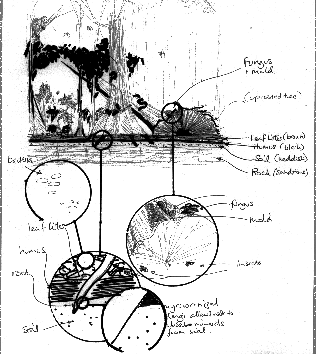 fungus
+ mold
(uprooted tree)
Leaf litter (brown)
Humus (black)
Soil (reddish)
Rock (sandstone)
bacteria
leaf litter
humus
root
soil
fungus
mold
insects
allow roots to
absorb minerals
from soil